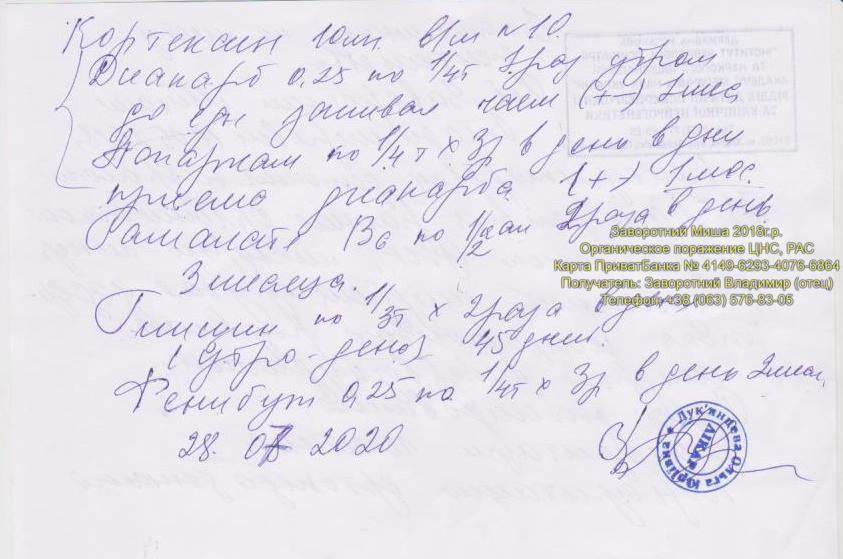 Кортексин 10мг в/м №10.
Диакарб 0,25 по 1/4т 1раз утром
до еды запивая чаем (+-) 1мес
Аспаркам по 1/4 т х 3р в день в дни
приема диакарба (+-) 1 мес.
Гамалате В6 по 1/2 2раза в день.
3 месяца.
Глицин по 1/3т х 2раза в день
(утро-день) 45 дней.
Фенибут 0,25 по 1/4т х 3р в день 2мес.
28. 2020
Лук'янцева Ольга Юріївна
ЛІКАР
Заворотний Миша 2018г.р.
Органическое поражение ЦНС, РАС
Карта ПриватБанка № 4149-6293-4076-6864
Получатель: Заворотний Владимир (отец)
Телефон: +38 (063) 576-83-05